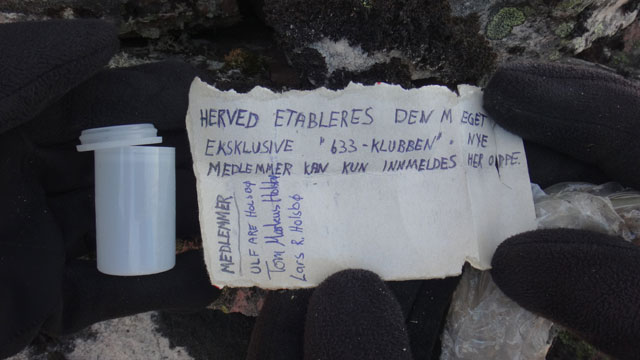 HERVED ETABLERES DEN MEGET
EKSKLUSIVE "633-KLUBBEN". NYE
MEDLEMMER KAN KUN INNMELDES HER OPPE.
MEDLEMMER
ULF ARE HOLSBØ
Tom Markus Holsbø
Lars R. Holsbø